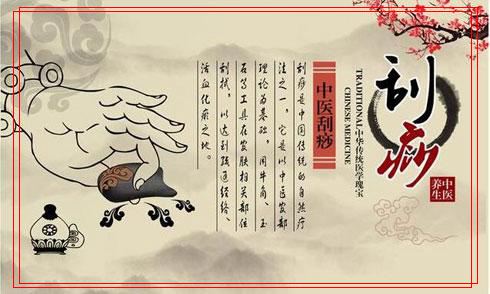 刮痧
中医
养生
TRADITIONAL 中华传统医学瑰宝
CHINESE MEDICINE
中医刮痧
刮痧是中国传统的自然疗
法之一，它是以中医皮部
理论为基础，用牛角、玉
石等工具在皮肤相关部位
刮拭，以达到疏通经络、
活血化瘀之地。